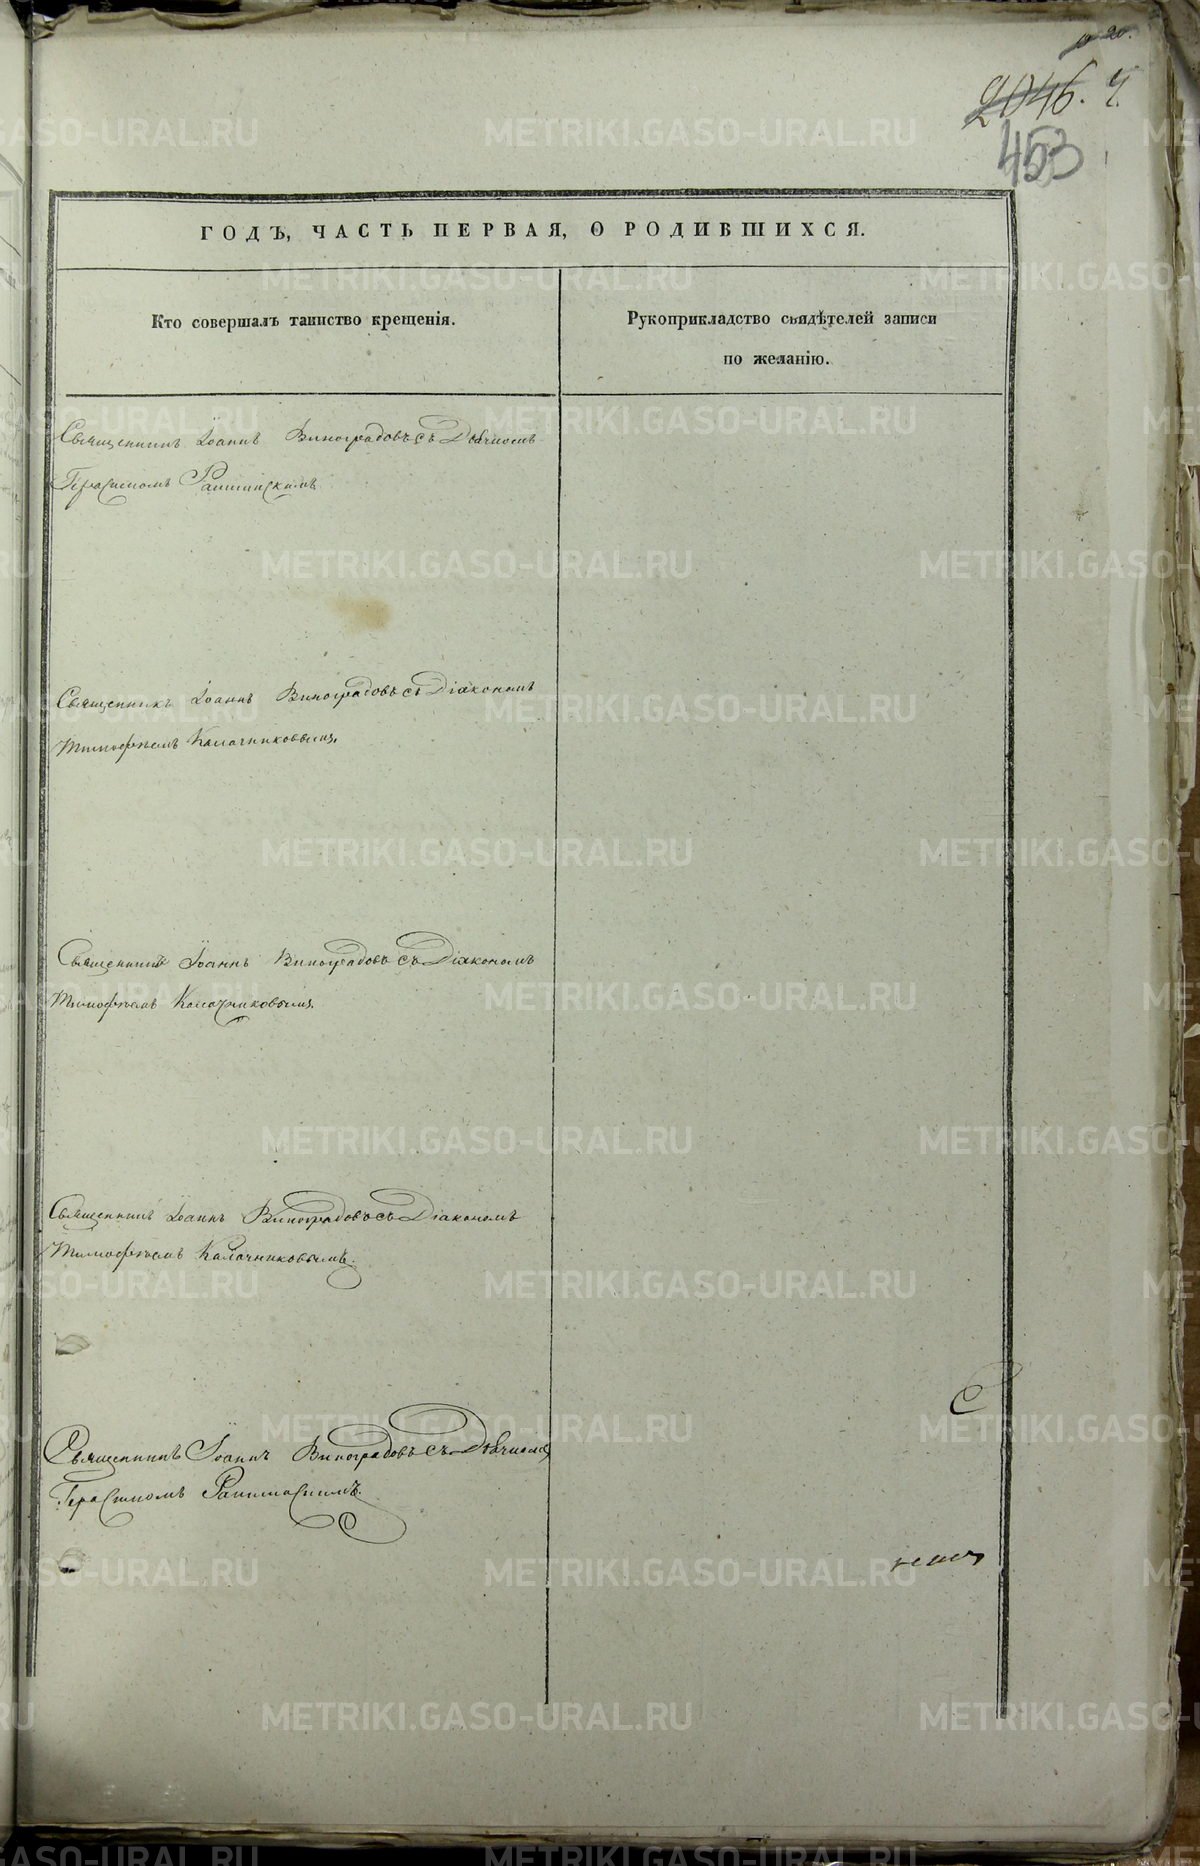 2046. Ч.
453
ГОДЪ, ЧАСТЬ ПЕРВАЯ, О РОДИВШИХСЯ.
Кто совершалъ таинство крещенія.
Рукоприкладство свидѣтелей записи
по желанію.
Священникъ Іоаннъ Виноградовъ съ Дьячкомъ
Герасимомъ
Священникъ Іоаннъ Виноградовъ съ Діакономъ
Тимофѣемъ Калачниковымъ
Священникъ Іоаннъ Виноградовъ съ Діакономъ
Тимофѣемъ Калачниковымъ
Священникъ Іоаннъ Виноградовъ съ Діакономъ
Тимофѣемъ Калачниковымъ.
Священникъ Іоаннъ Виноградовъ съ Дьячкомъ
Герасимомъ
METRIKI.GASO-URAL.RU